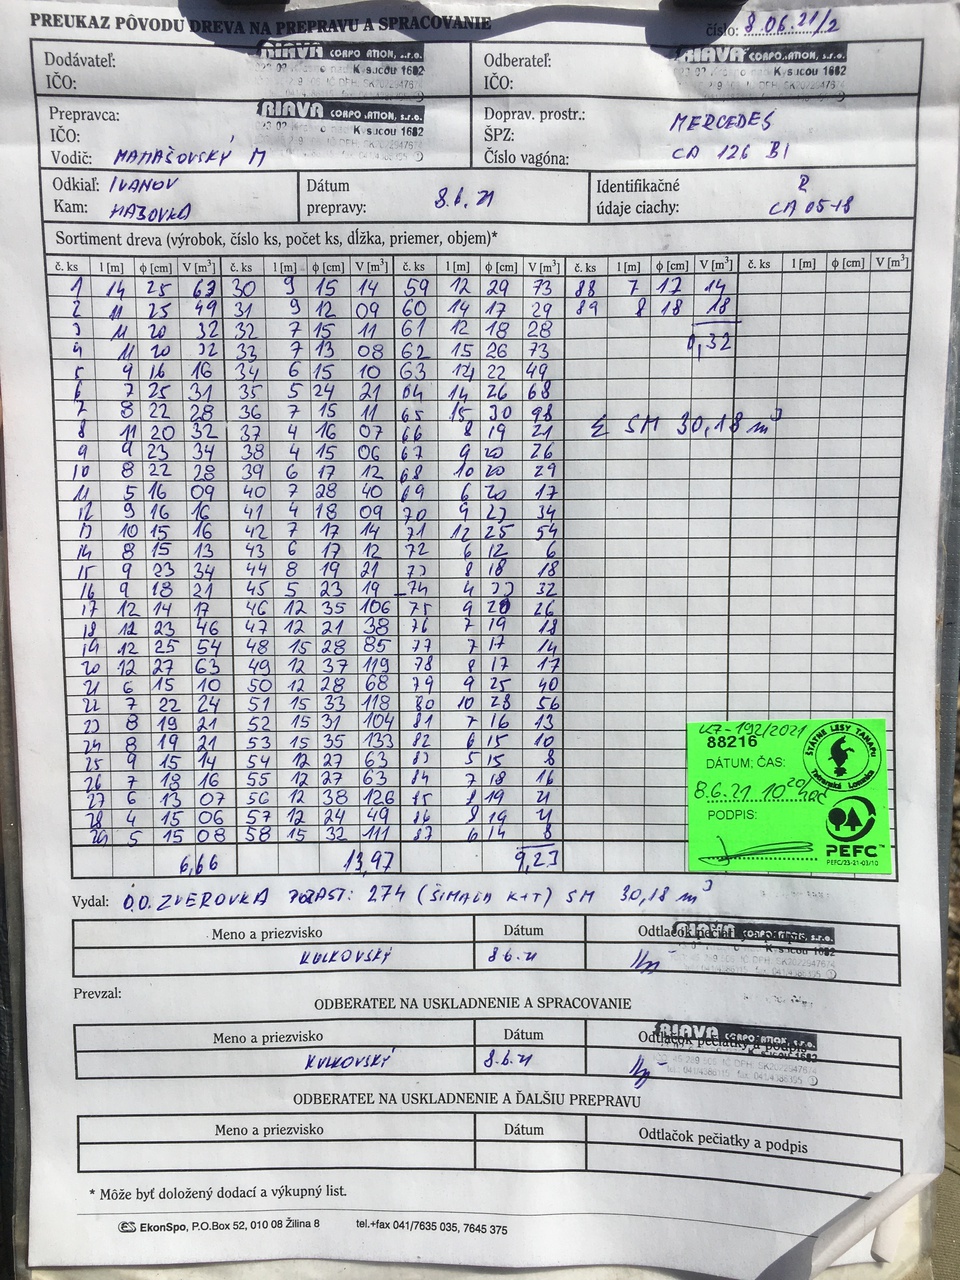 PREUKAZ PÔVODU DREVA NA PREPRAVU A SPRACOVANIE číslo: 8.06.21/2
Dodávateľ: RIAVA CORPORATION, s.r.o. Odberateľ: RIAVA CORPORATION, s.r.o.
IČO: IČO:
Prepravca: RIAVA CORPORATION, s.r.o. Doprav. prostr.: MERCEDES
IČO: ŠPZ: CA 126 BI
Vodič: MAMAŠOVSKÝ M Číslo vagóna:
Odkiaľ: IVANOV Dátum Identifikačné R
Kam: HABOVKA prepravy: 8.6.21 údaje ciachy: CA 05-18
Sortiment dreva (výrobok, číslo ks, počet ks, dĺžka, priemer, objem)*
č. ks l [m] ϕ [cm] V [m³] č. ks l [m] ϕ [cm] V [m³] č. ks l [m] ϕ [cm] V [m³] č. ks l [m] ϕ [cm] V [m³] č. ks l [m] ϕ [cm] V [m³]
1 14 25 63 30 9 15 14 59 12 29 73 88 7 17 14
2 11 25 49 31 9 12 09 60 14 17 29 89 8 18 18
3 11 20 32 32 7 15 11 61 12 18 28
4 11 20 32 33 7 13 08 62 15 26 73 0,32
5 9 16 16 34 6 15 10 63 12 22 49
6 7 25 31 35 5 24 21 64 14 26 68
7 8 22 28 36 7 15 11 65 15 30 98
8 11 20 32 37 4 16 07 66 8 19 21 Σ SM 30,18 m³
9 9 23 34 38 4 15 06 67 9 20 26
10 8 22 28 39 6 17 12 68 10 20 29
11 5 16 09 40 7 28 40 69 6 20 17
12 9 16 16 41 4 18 09 70 9 23 34
13 10 15 16 42 7 17 14 71 12 25 54
14 8 15 13 43 6 17 12 72 6 12 6
15 9 23 34 44 8 19 21 73 8 18 18
16 9 18 21 45 5 23 19 74 4 33 32
17 12 14 17 46 12 35 106 75 9 20 26
18 12 23 46 47 12 21 38 76 7 19 18
19 12 25 54 48 15 28 85 77 7 17 14
20 12 27 63 49 12 37 119 78 8 17 17
21 6 15 10 50 12 28 68 79 9 25 40
22 7 22 24 51 15 33 118 80 10 28 56
23 8 19 21 52 15 31 104 81 7 16 13
24 8 19 21 53 15 35 133 82 6 15 10
25 9 15 14 54 12 27 63 83 5 15 8
26 7 18 16 55 12 27 63 84 7 18 16
27 6 13 07 56 12 38 126 85 8 19 21
28 4 15 06 57 12 24 49 86 8 19 21
29 5 15 08 58 15 32 111 87 6 14 8
6,66 13,97 9,23
LZ-192/2021
88216
DÁTUM: ČAS:
8.6.21 10
PODPIS:
ŠTÁTNE LESY TANAPu
Tatranská Lomnica
PEFC
PEFC/23-21-03/10
Vydal: O.O. ZVEROVKA 274 SM 30,18 m³
Meno a priezvisko Dátum Odtlačok pečiatky a podpis
KULKOVSKÝ 8.6.21
Prevzal:
ODBERATEĽ NA USKLADNENIE A SPRACOVANIE
Meno a priezvisko Dátum Odtlačok pečiatky a podpis
RIAVA CORPORATION, s.r.o.
KULKOVSKÝ 8.6.21
ODBERATEĽ NA USKLADNENIE A ĎALŠIU PREPRAVU
Meno a priezvisko Dátum Odtlačok pečiatky a podpis
* Môže byť doložený dodací a výkupný list.
EkonSpo, P.O.Box 52, 010 08 Žilina 8 tel.+fax 041/7635 035, 7645 375